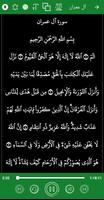 آل عمران
سورة آل عمران
بِسْمِ اللَّهِ الرَّحْمَنِ الرَّحِيمِ
الم ۝ اللَّهُ لَا إِلَهَ إِلَّا هُوَ الْحَيُّ الْقَيُّومُ ۝ نَزَّلَ
عَلَيْكَ الْكِتَابَ بِالْحَقِّ مُصَدِّقًا لِمَا بَيْنَ يَدَيْهِ
وَأَنْزَلَ التَّوْرَاةَ وَالْإِنْجِيلَ ۝ مِنْ قَبْلُ هُدًى
لِلنَّاسِ وَأَنْزَلَ الْفُرْقَانَ إِنَّ الَّذِينَ كَفَرُوا
بِآيَاتِ اللَّهِ لَهُمْ عَذَابٌ شَدِيدٌ وَاللَّهُ عَزِيزٌ
ذُو انْتِقَامٍ ۝ إِنَّ اللَّهَ لَا يَخْفَى عَلَيْهِ شَيْءٌ
فِي الْأَرْضِ وَلَا فِي السَّمَاءِ ۝ هُوَ الَّذِي
يُصَوِّرُكُمْ فِي الْأَرْحَامِ كَيْفَ يَشَاءُ لَا